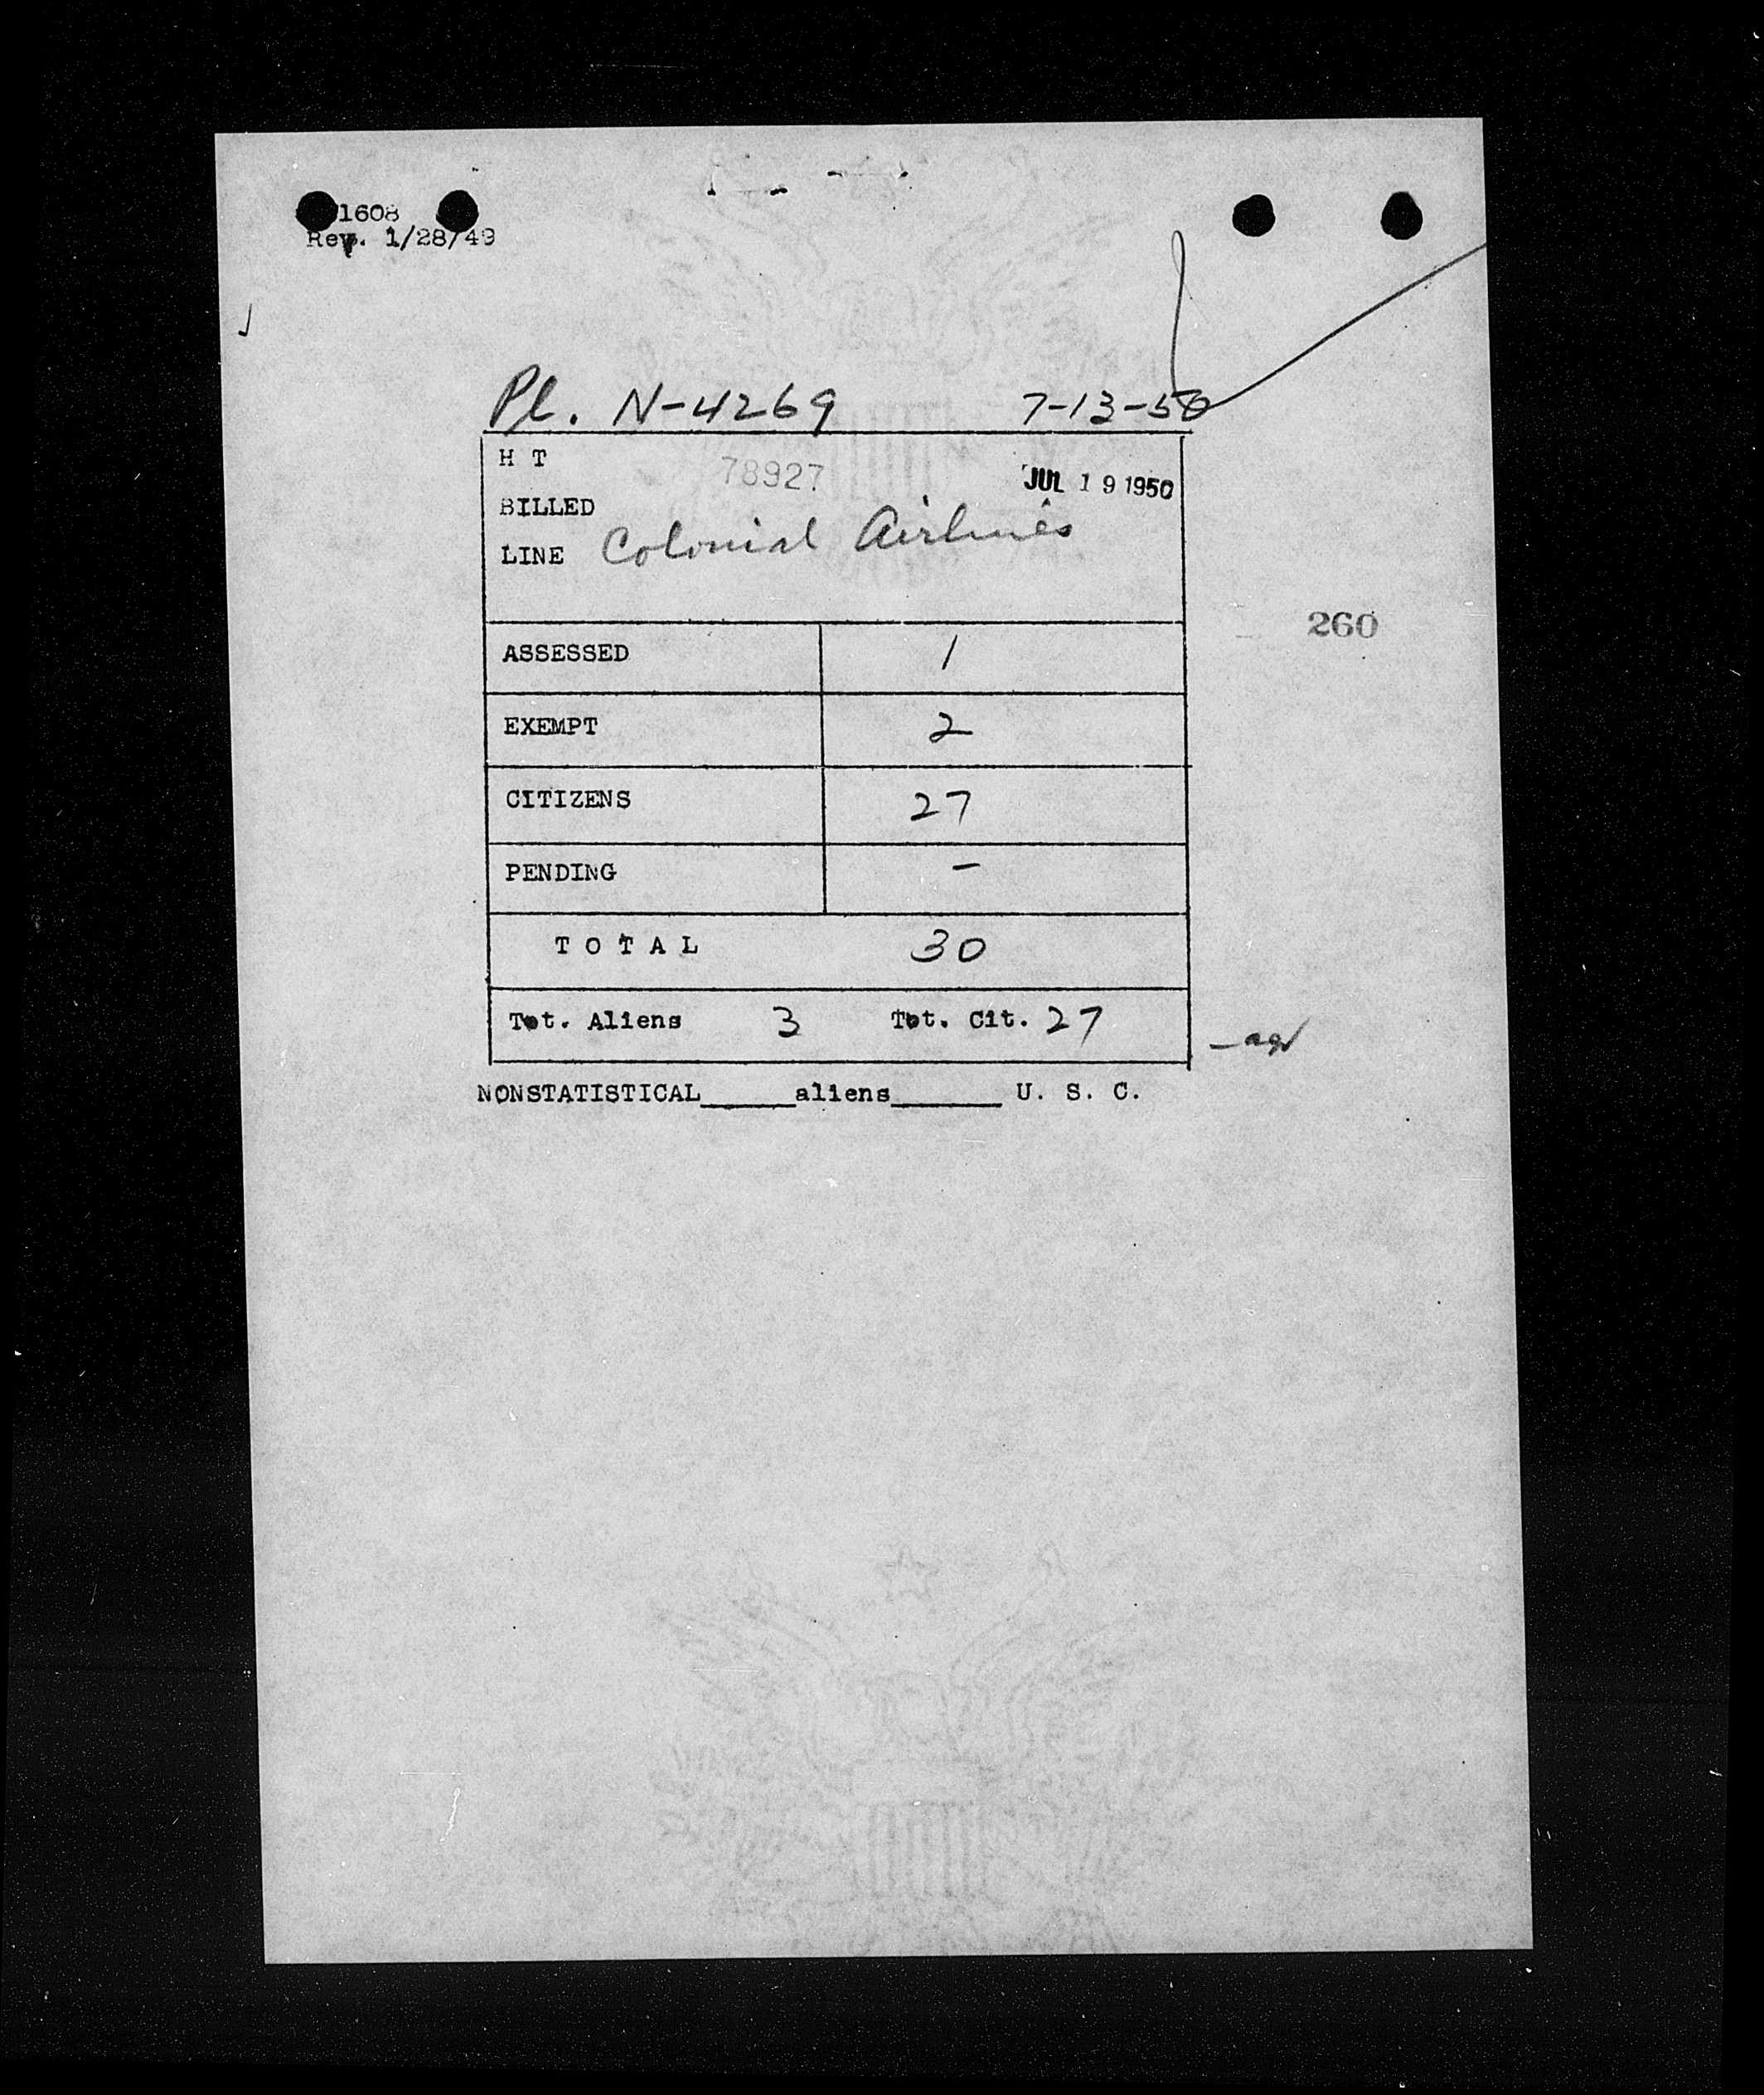 1608
Rev. 1/28/49
Pl. N-4269 7-13-50
H T 78927 JUL 19 1950
BILLED
LINE Colonial Airlines
260
ASSESSED 1
EXEMPT 2
CITIZENS 27
PENDING -
TOTAL 30
Tot. Aliens 3 Tot. Cit. 27
NONSTATISTICAL_____aliens______ U. S. C.